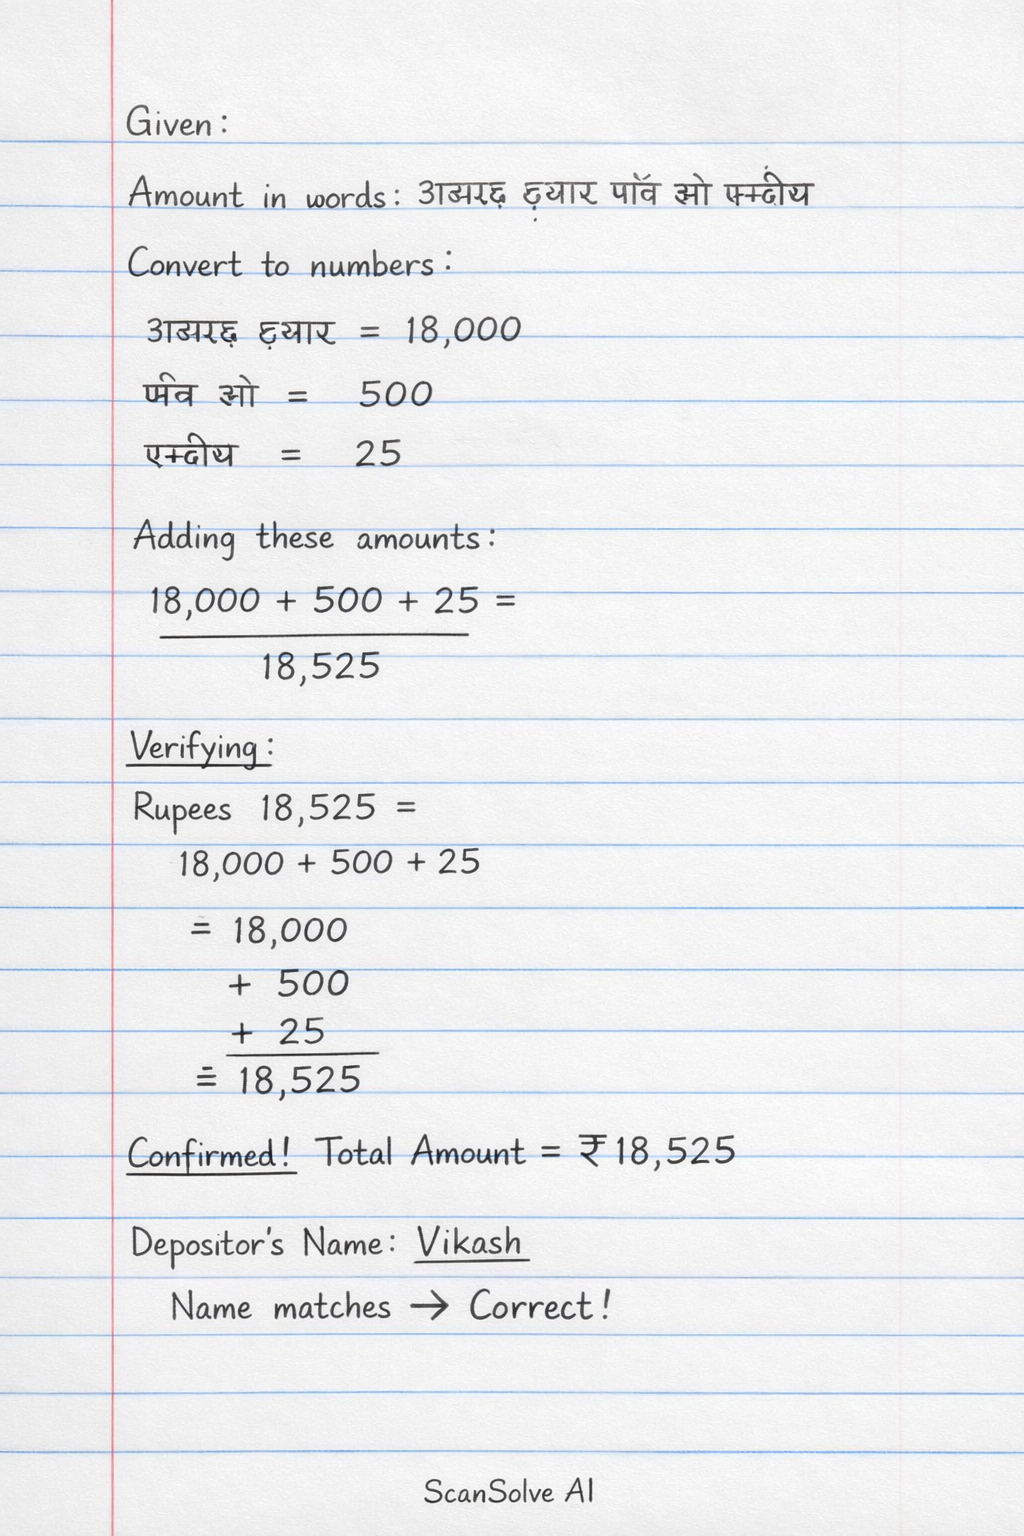 Given:
Amount in words:
Convert to numbers:
= 18,000
= 500
= 25
Adding these amounts:
18,000 + 500 + 25 =
18,525
Verifying:
Rupees 18,525 =
18,000 + 500 + 25
= 18,000
+ 500
+ 25
= 18,525
Confirmed! Total Amount = ₹18,525
Depositor's Name: Vikash
Name matches → Correct!
ScanSolve AI